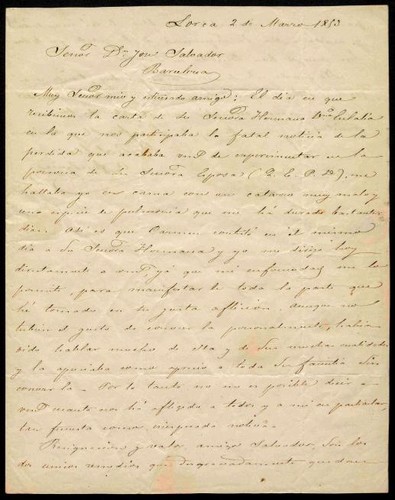 Lorca 2 de Marzo 1853
Señor Dn José Salvador
Barcelona
Muy Señor mio y estimado amigo: El dia en que
recibimos la carta de su Señora Hermana Dña Eulalia
en la que nos participaba la fatal noticia de la
perdida que acababa vmd de experimentar en la
persona de su Señora Esposa (Q.E.P.D.), me
hallaba yo en cama con un catarro muy malo y
una especie de pulmonia que me há durado bastantes
dias. Asi es que Carmen contestó en el mismo
dia á su Señora Hermana y yo me dirijo hoy
directamente á vmd ya que mi enfermedad me lo
permite, para manifestarle toda la parte que
hé tomado en su justa afliccion. Aunque no
tuve el gusto de conocerla personalmente, habia
oido hablar mucho de ella y de sus muchas cualidades
y la apreciaba como aprecio á toda su familia sin
conocerla. Por lo tanto no me es posible decir á
vmd cuanto nos há afligido á todos y á mi en particular,
tan funesta como inesperada noticia.
Resignacion y valor, amigo Salvador, son los
dos unicos remedios que desgraciadamente quedan